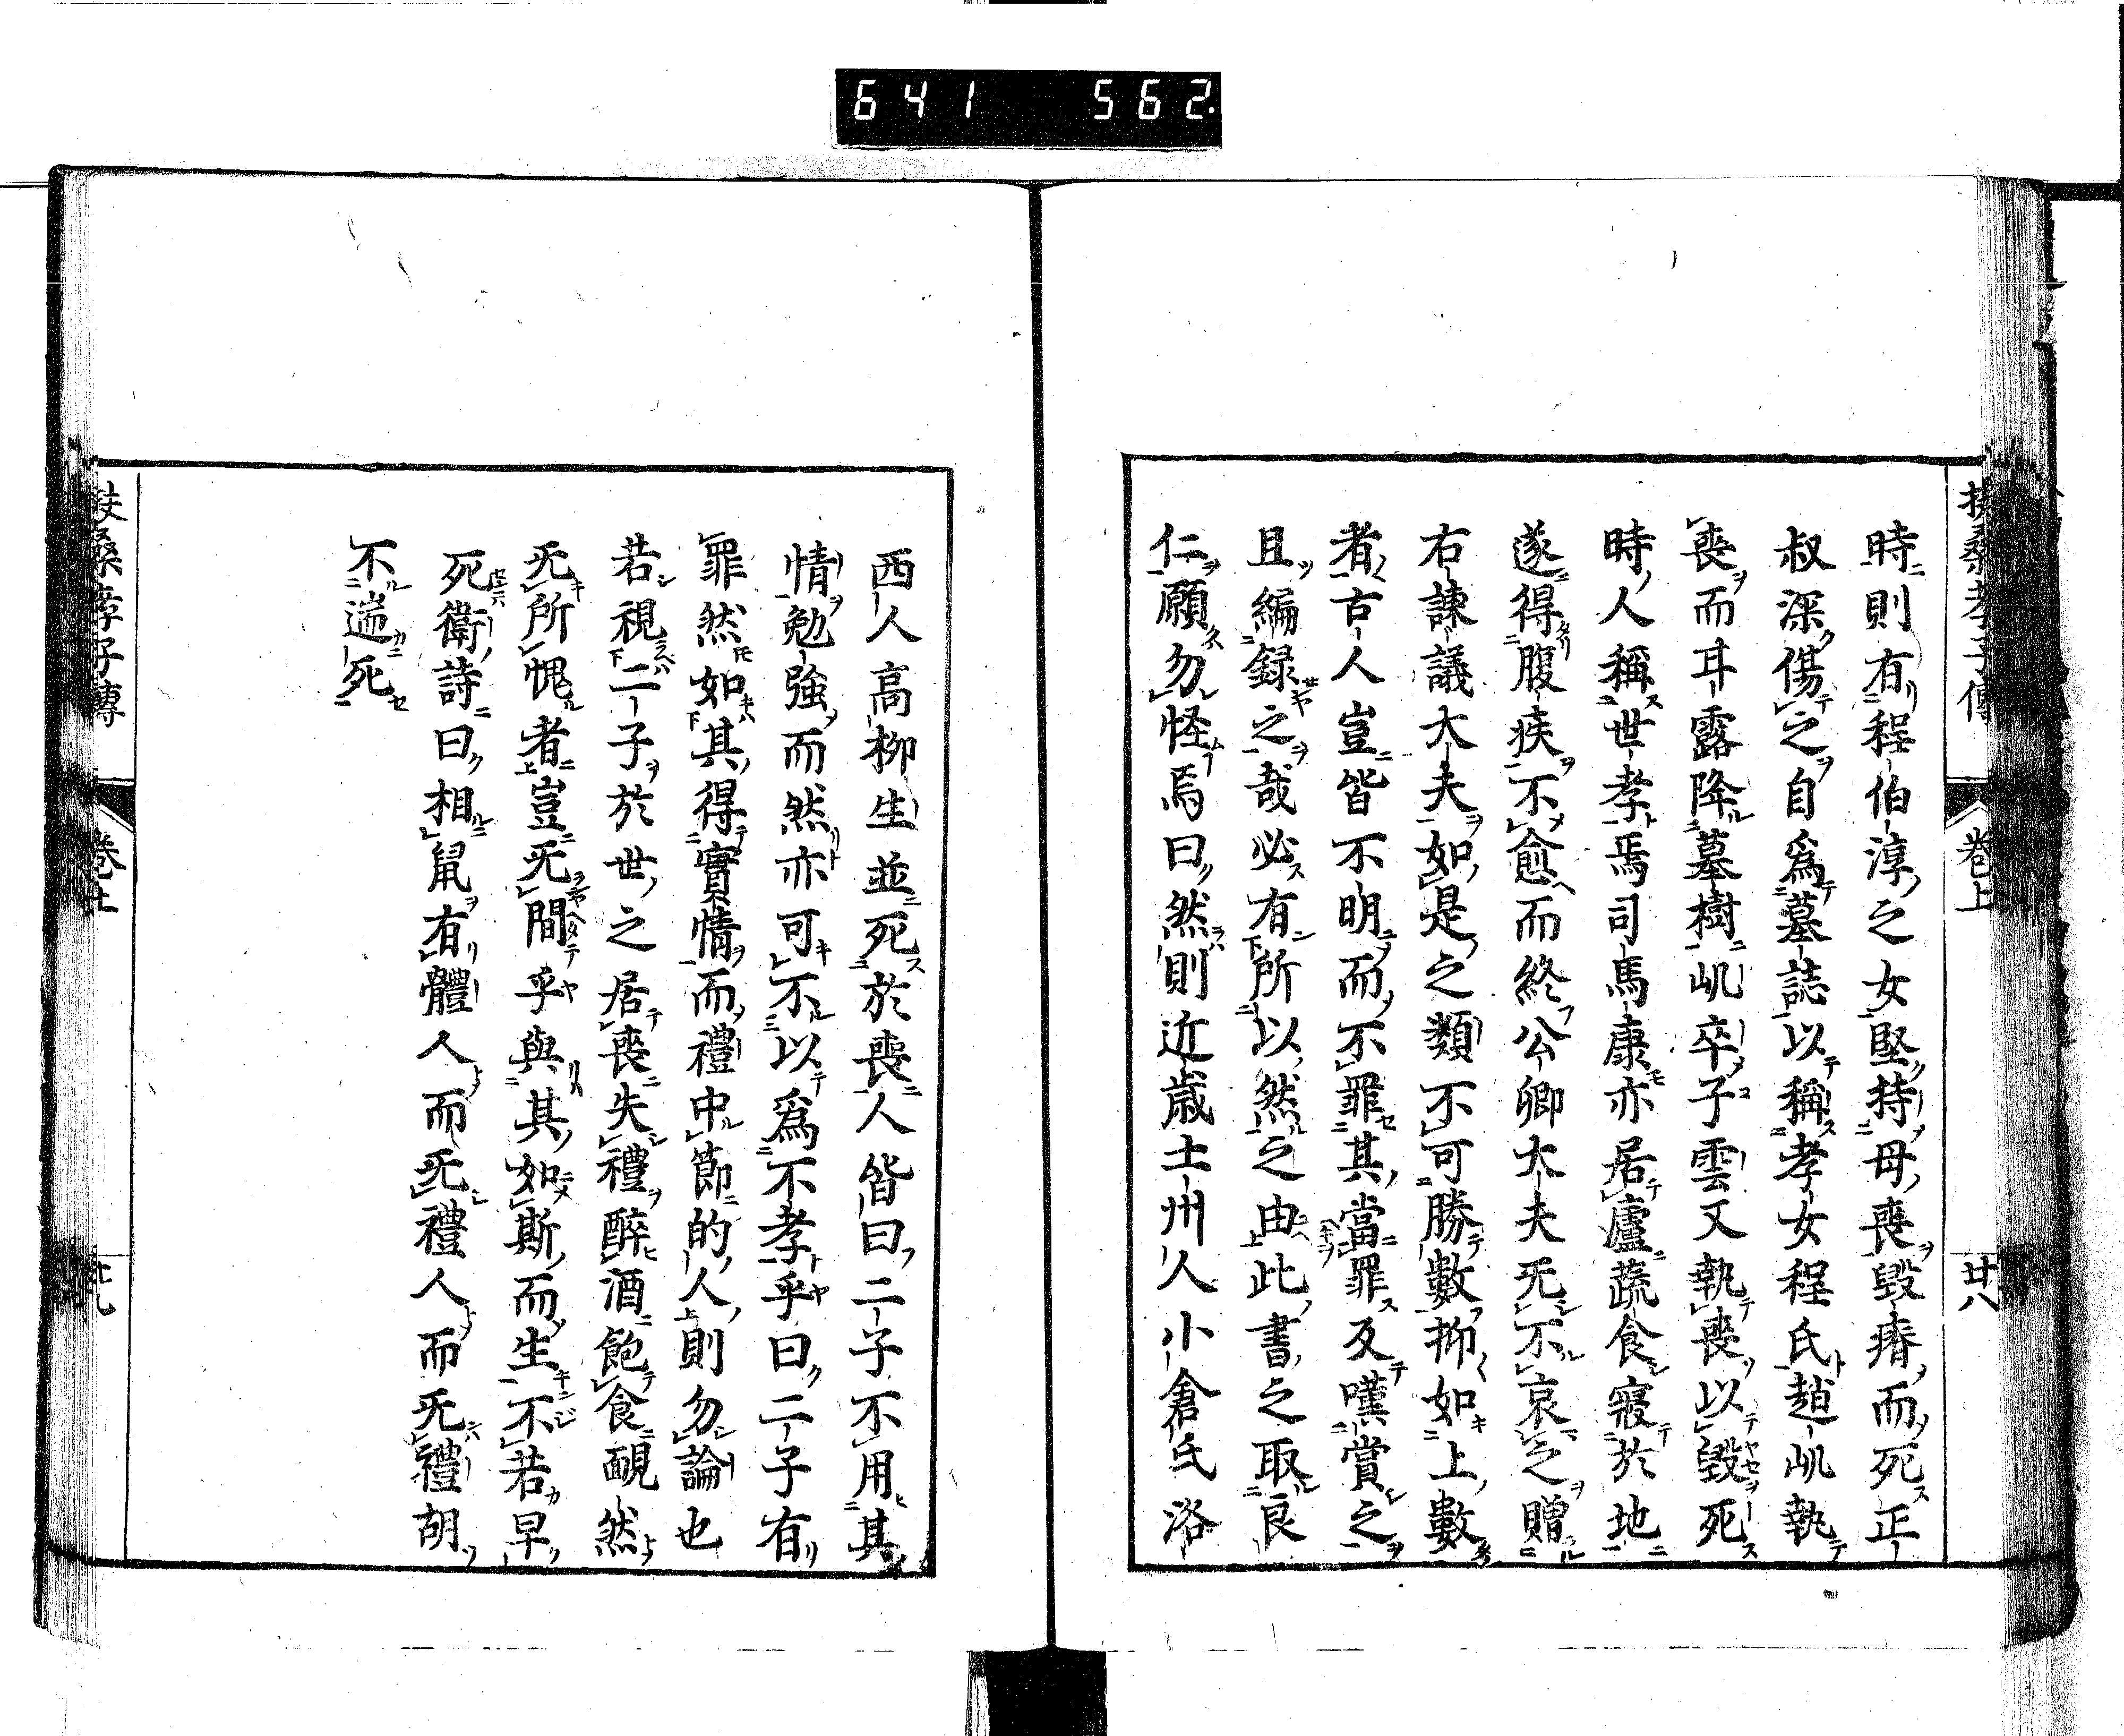 641 562
扶桑孝子傳 卷上 廿八
時則有程伯淳之女堅持母喪毀瘠而死正
叔深傷之自爲墓誌以稱孝女程氏趙㞦執
喪而耳露降墓樹㞦卒子雲又執喪以毀死
時人稱世孝焉司馬康亦居廬蔬食寢於地
遂得腹疾不愈而終公卿大夫旡不哀之贈
右諌議大夫如是之類不可勝數抑如上數
者古人豈皆不明而不罪其當罪及嘆賞之
且編録之哉必有所以然之由此書之取良
仁願勿怪焉曰然則近歳士州人小倉氏洛
西人高柳生並死於喪人皆曰二子不用其
情勉強而然亦可不以爲不孝乎曰二子有
罪然如其得實情而禮中節的人則勿論也
若視二子於世之居喪失禮醉酒飽食靦然
旡所愧者豈旡間乎與其如斯而生不若早
死衛詩曰相鼠有體人而旡禮人而旡禮胡
不遄死
扶桑孝子傳 卷上 廿九